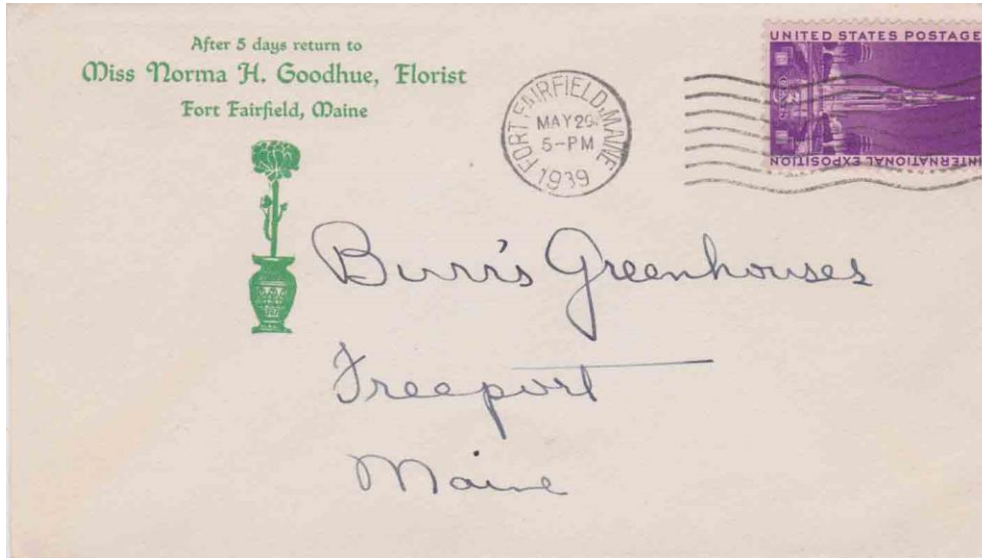 After 5 days return to
Miss Norma H. Goodhue, Florist
Fort Fairfield, Maine
FORT FAIRFIELD, MAINE
MAY 29
5-PM
1939
UNITED STATES POSTAGE
INTERNATIONAL EXPOSITION
Burr's Greenhouses
Freeport
Maine